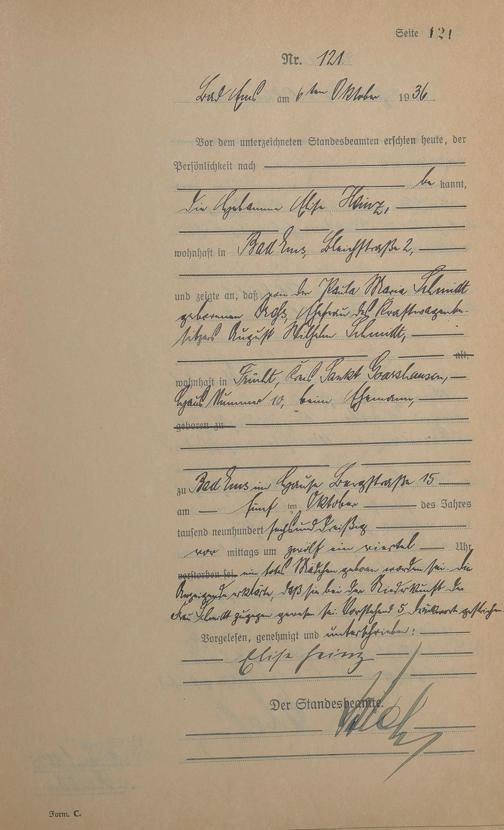 Seite 121
Nr. 121
Bad Ems am 6ten Oktober 1936
Vor dem unterzeichneten Standesbeamten erschien heute, der
Persönlichkeit nach
be kannt,
die Hebamme Elise Heinz,
wohnhaft in Bad Ems, Bleichstraße 2,
und zeigte an, daß von der Paula Maria Schmidt
geborenen Sechs, Ehefrau des Kraftwagenbe-
sitzers August Wilhelm Schmidt,
alt,
wohnhaft in Frücht, Kreis Sankt Goarshausen,
Haus Nummer 10, beim Ehemann,
geboren zu
zu Bad Ems im Hause Bergstraße 15
am fünf ten Oktober des Jahres
tausend neunhundert sechsunddreißig
vor mittags um zwölf ein viertel Uhr
verstorben sei. ein totes Mädchen geboren worden sei. Die
Anzeigende erklärte, daß sie bei der Niederkunft der
Frau Schmidt zugegen gewesen sei. Vorstehend 5 Druckworte gestrichen
Vorgelesen, genehmigt und unterschrieben:
Elise Heinz
Der Standesbeamte.
Form. C.